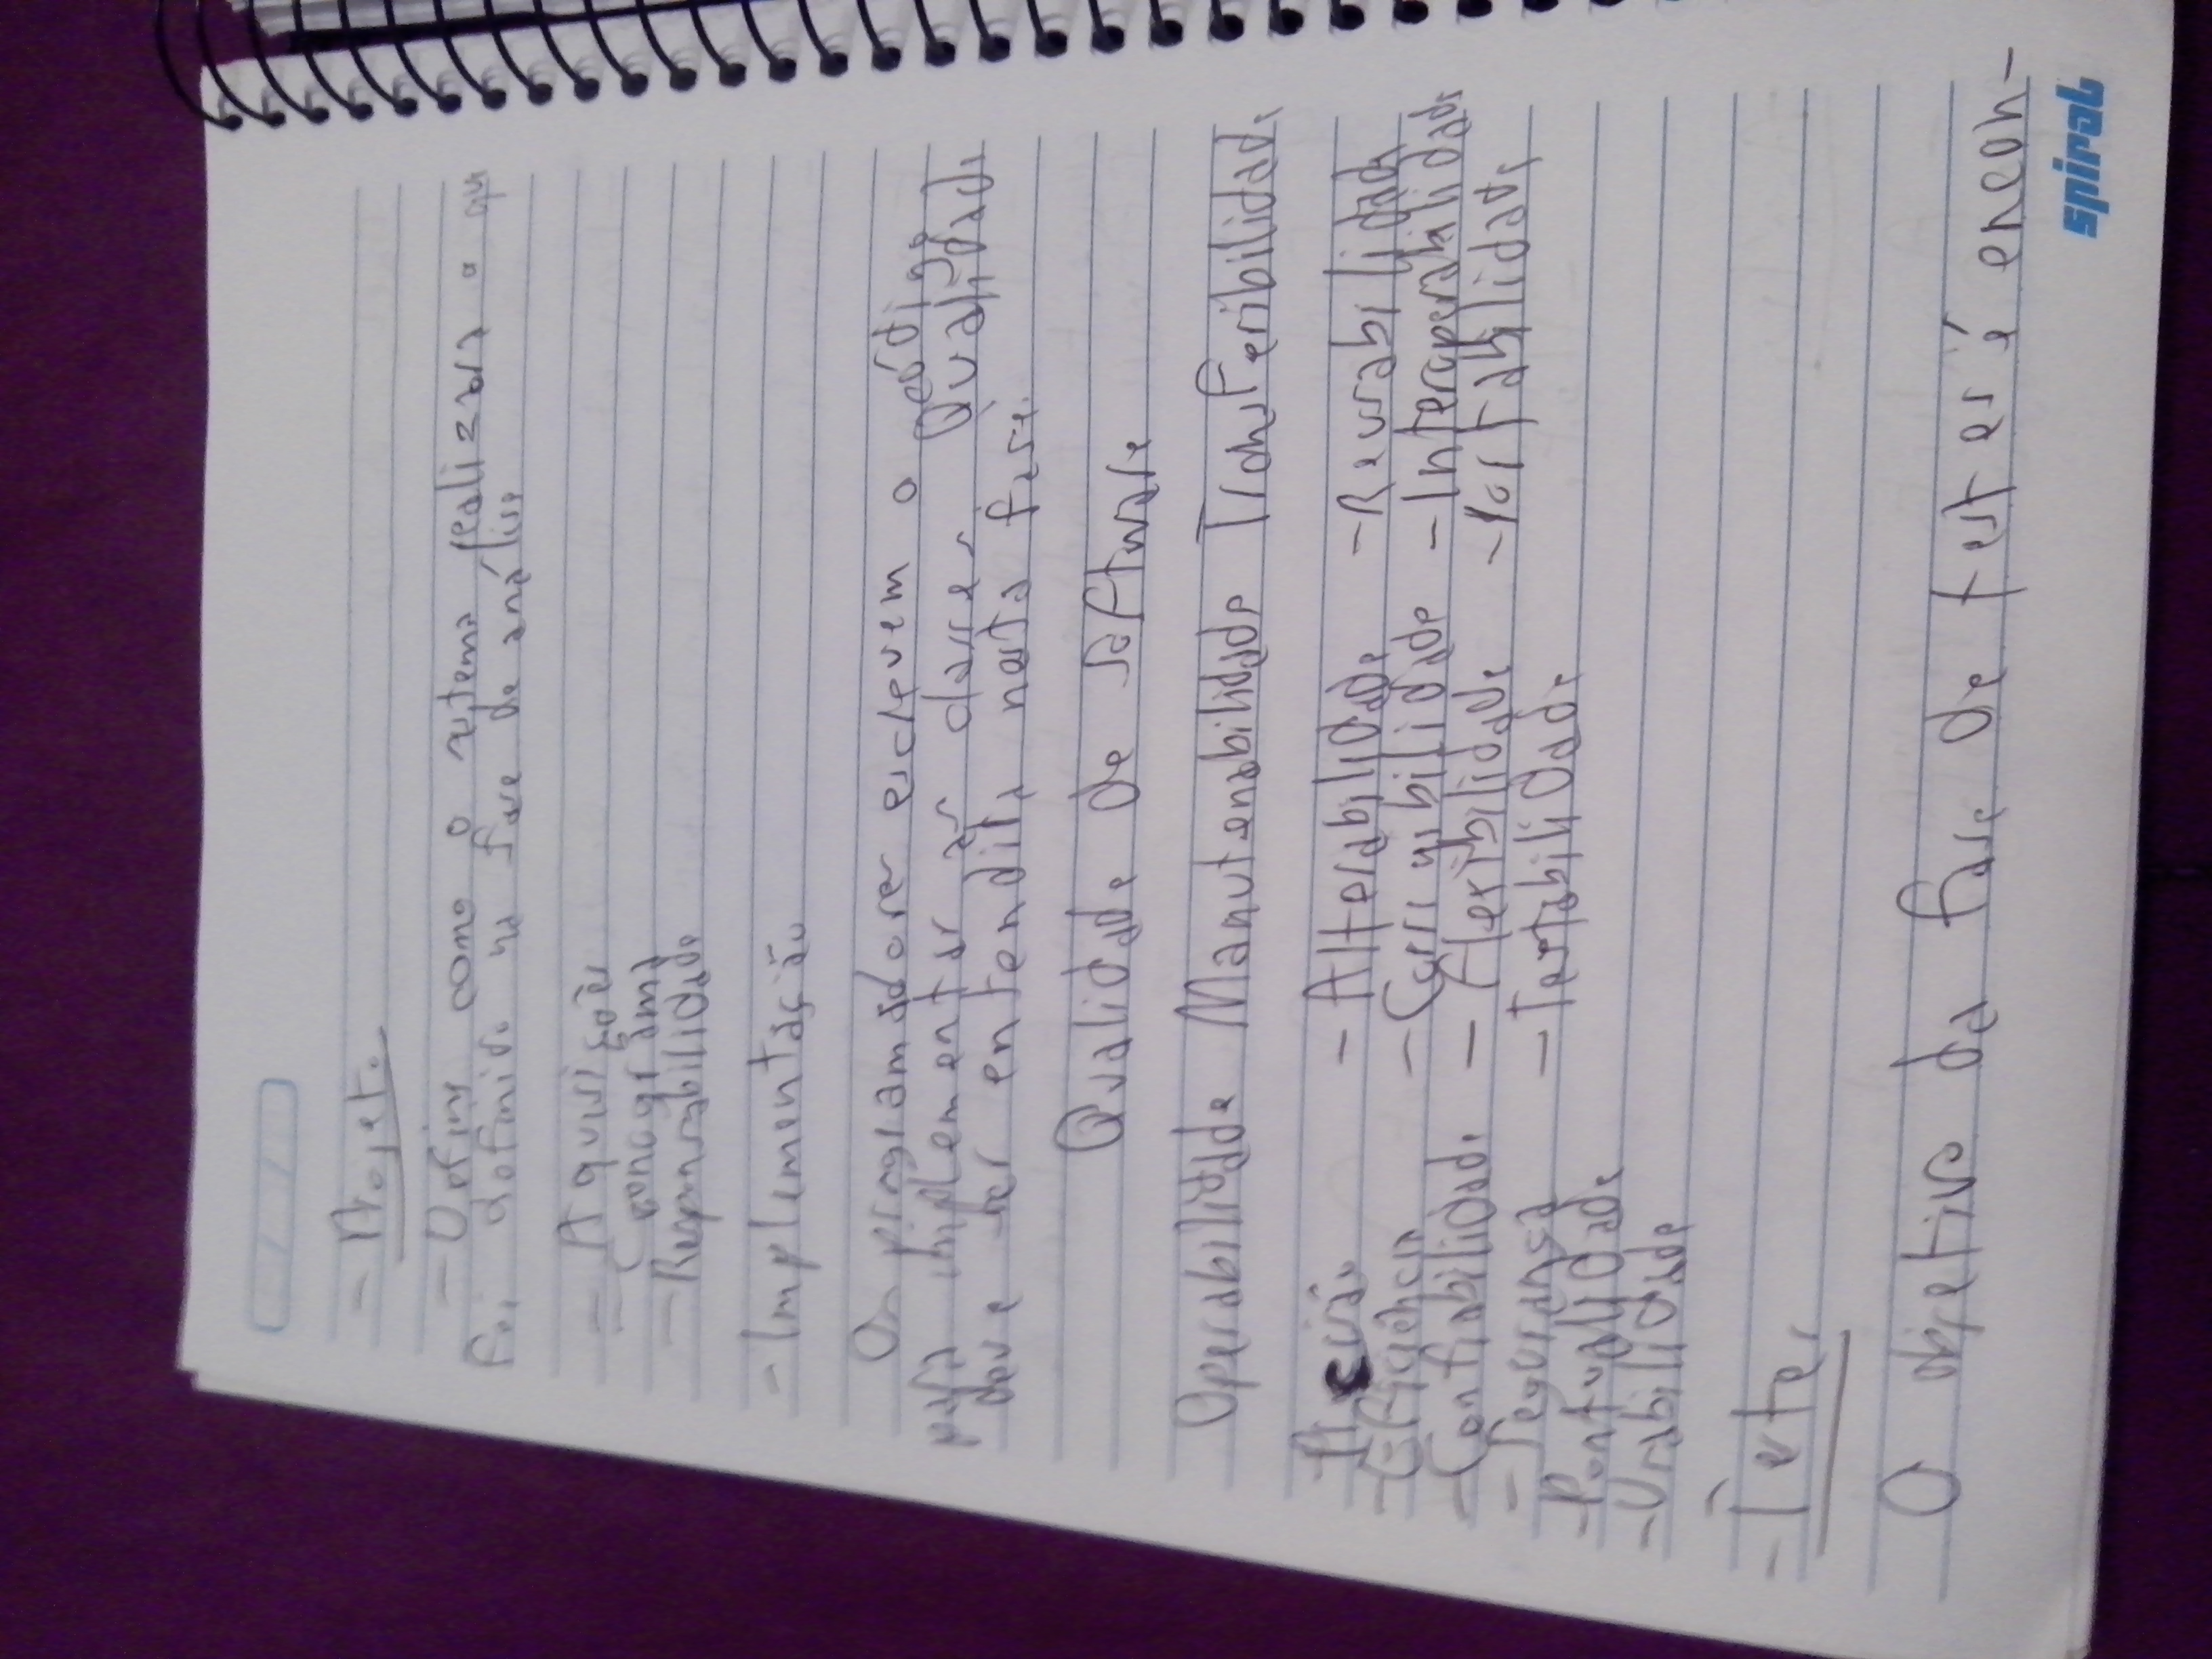 - Projeto
- Define como o sistema realizará o que
foi definido na fase de análise
- Aquisições
- Cronograma
- Responsabilidade
- Implementação
Os programadores escrevem o código
para implementar as classes. Qualidade
deve ser entendida nesta fase.
Qualidade de Software
Operabilidade Manutenabilidade Transferibilidade
- Alterabilidade - Reusabilidade
- Eficiência - Corrigibilidade - Interoperabilidade
- Confiabilidade - Flexibilidade - Portabilidade
- Segurança - Testabilidade
- Pontualidade
- Usabilidade
- Testes
O objetivo da fase de testes é encon-
spiral